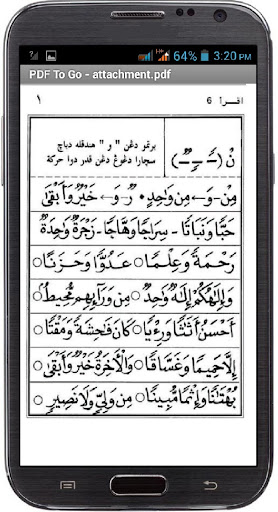 64% 3:20 PM
PDF To Go - attachment.pdf
اقرأ 6 ١
نْ (ـًـ ـٍـ ـٌـ)
برتمو دغن " و " هندقله دباچ
سچارا دغوڠ دغن قدر دوا حركة
مِنْ-وَ ← مِن وَاحِدٍ • رٌ وَ ← خَيْرٌ وَأَبْقَىٰ
حَبًّا وَنَبَاتًا - سِرَاجًا وَهَّاجًا - زَجْرَةٌ وَاحِدَةٌ
رَحْمَةً وَعِلْمًا ○ عَدُوًّا وَحَزَنًا ○
وَإِلَٰهُكُمْ إِلَٰهٌ وَاحِدٌ ○ مِن وَرَآئِهِم مُّحِيطٌ ○
أَحْسَنُ أَثَٰثًا وَرِءْيًا ○ كَانَ فَٰحِشَةً وَمَقْتًا
إِلَّا حَمِيمًا وَغَسَّاقًا ○ وَالْآخِرَةُ خَيْرٌ وَأَبْقَىٰ
بُهْتَٰنًا وَإِثْمًا مُّبِينًا ○ مِن وَلِيٍّ وَلَا نَصِيرٍ ○